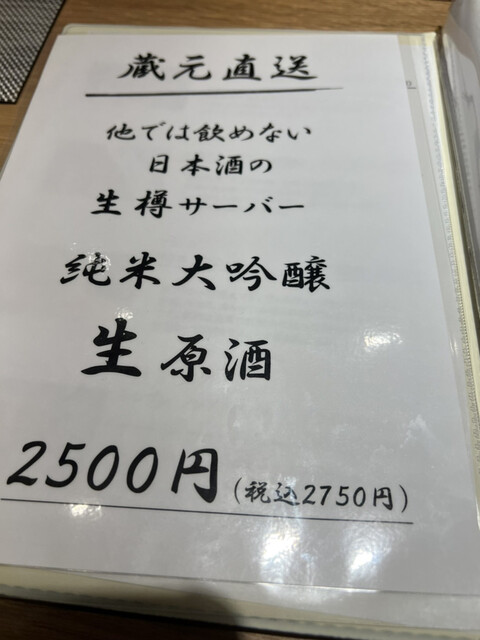 蔵元直送
他では飲めない
日本酒の
生樽サーバー
純米大吟醸
生原酒
2500円(税込2750円)